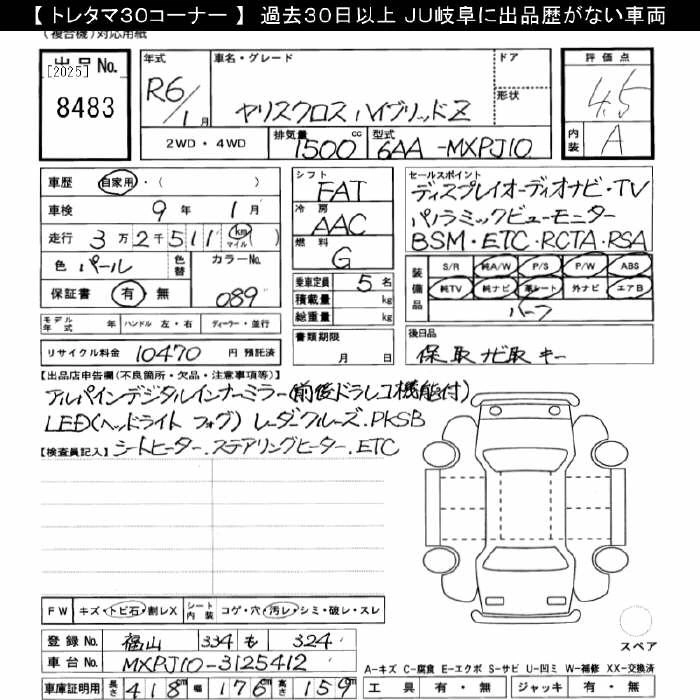 【 トレタマ30コーナー 】 過去30日以上 JU岐阜に出品歴がない車両
（複合機）対応用紙
出品No. 年式 車名・グレード ドア 評価点
[2025] 8483 R6/1月 ヤリスクロス ハイブリッドZ 形状 4.5
2WD・4WD 排気量 1500 cc 型式 6AA-MXPJ10 内装 A
車歴 自家用・（ ） シフト FAT セールスポイント
車検 9年 1月 冷房 AAC ディスプレイオーディオナビ・TV
走行 3万2千511 km マイル （ ） 燃料 G パノラミックビューモニター
BSM・ETC・RCTA・RSA
色 パール 色替 カラーNo. 089 乗車定員 5名 装備品 S/R 純A/W P/S P/W ABS
保証書 有・無 積載量 kg 純TV 純ナビ 革シート 外ナビ エアB
総重量 kg ハーフ
モデル年式 年 ハンドル 左・右 ディーラー・並行 書類期限 月 日 後日品
リサイクル料金 10470 円 預託済 保 取 ナビ取 キー
【出品店申告欄（不良箇所・欠品・注意事項等）】
アルパインデジタルインナーミラー（前後ドラレコ機能付）
LED（ヘッドライト フォグ）レーダークルーズ.PKSB
【検査員記入】 シートヒーター.ステアリングヒーター.ETC
FW キズ・トビ石・割レX シート内装 コゲ・穴・汚レ・シミ・破レ・スレ
スペア
登録No. 福山 334 も 324
車台No. MXPJ10-3125412
A-キズ C-腐食 E-エクボ S-サビ U-凹ミ W-補修 XX-交換済
車庫証明用 長さ 418cm 幅 176cm 高さ 159cm 工具 有・無 ジャッキ 有・無